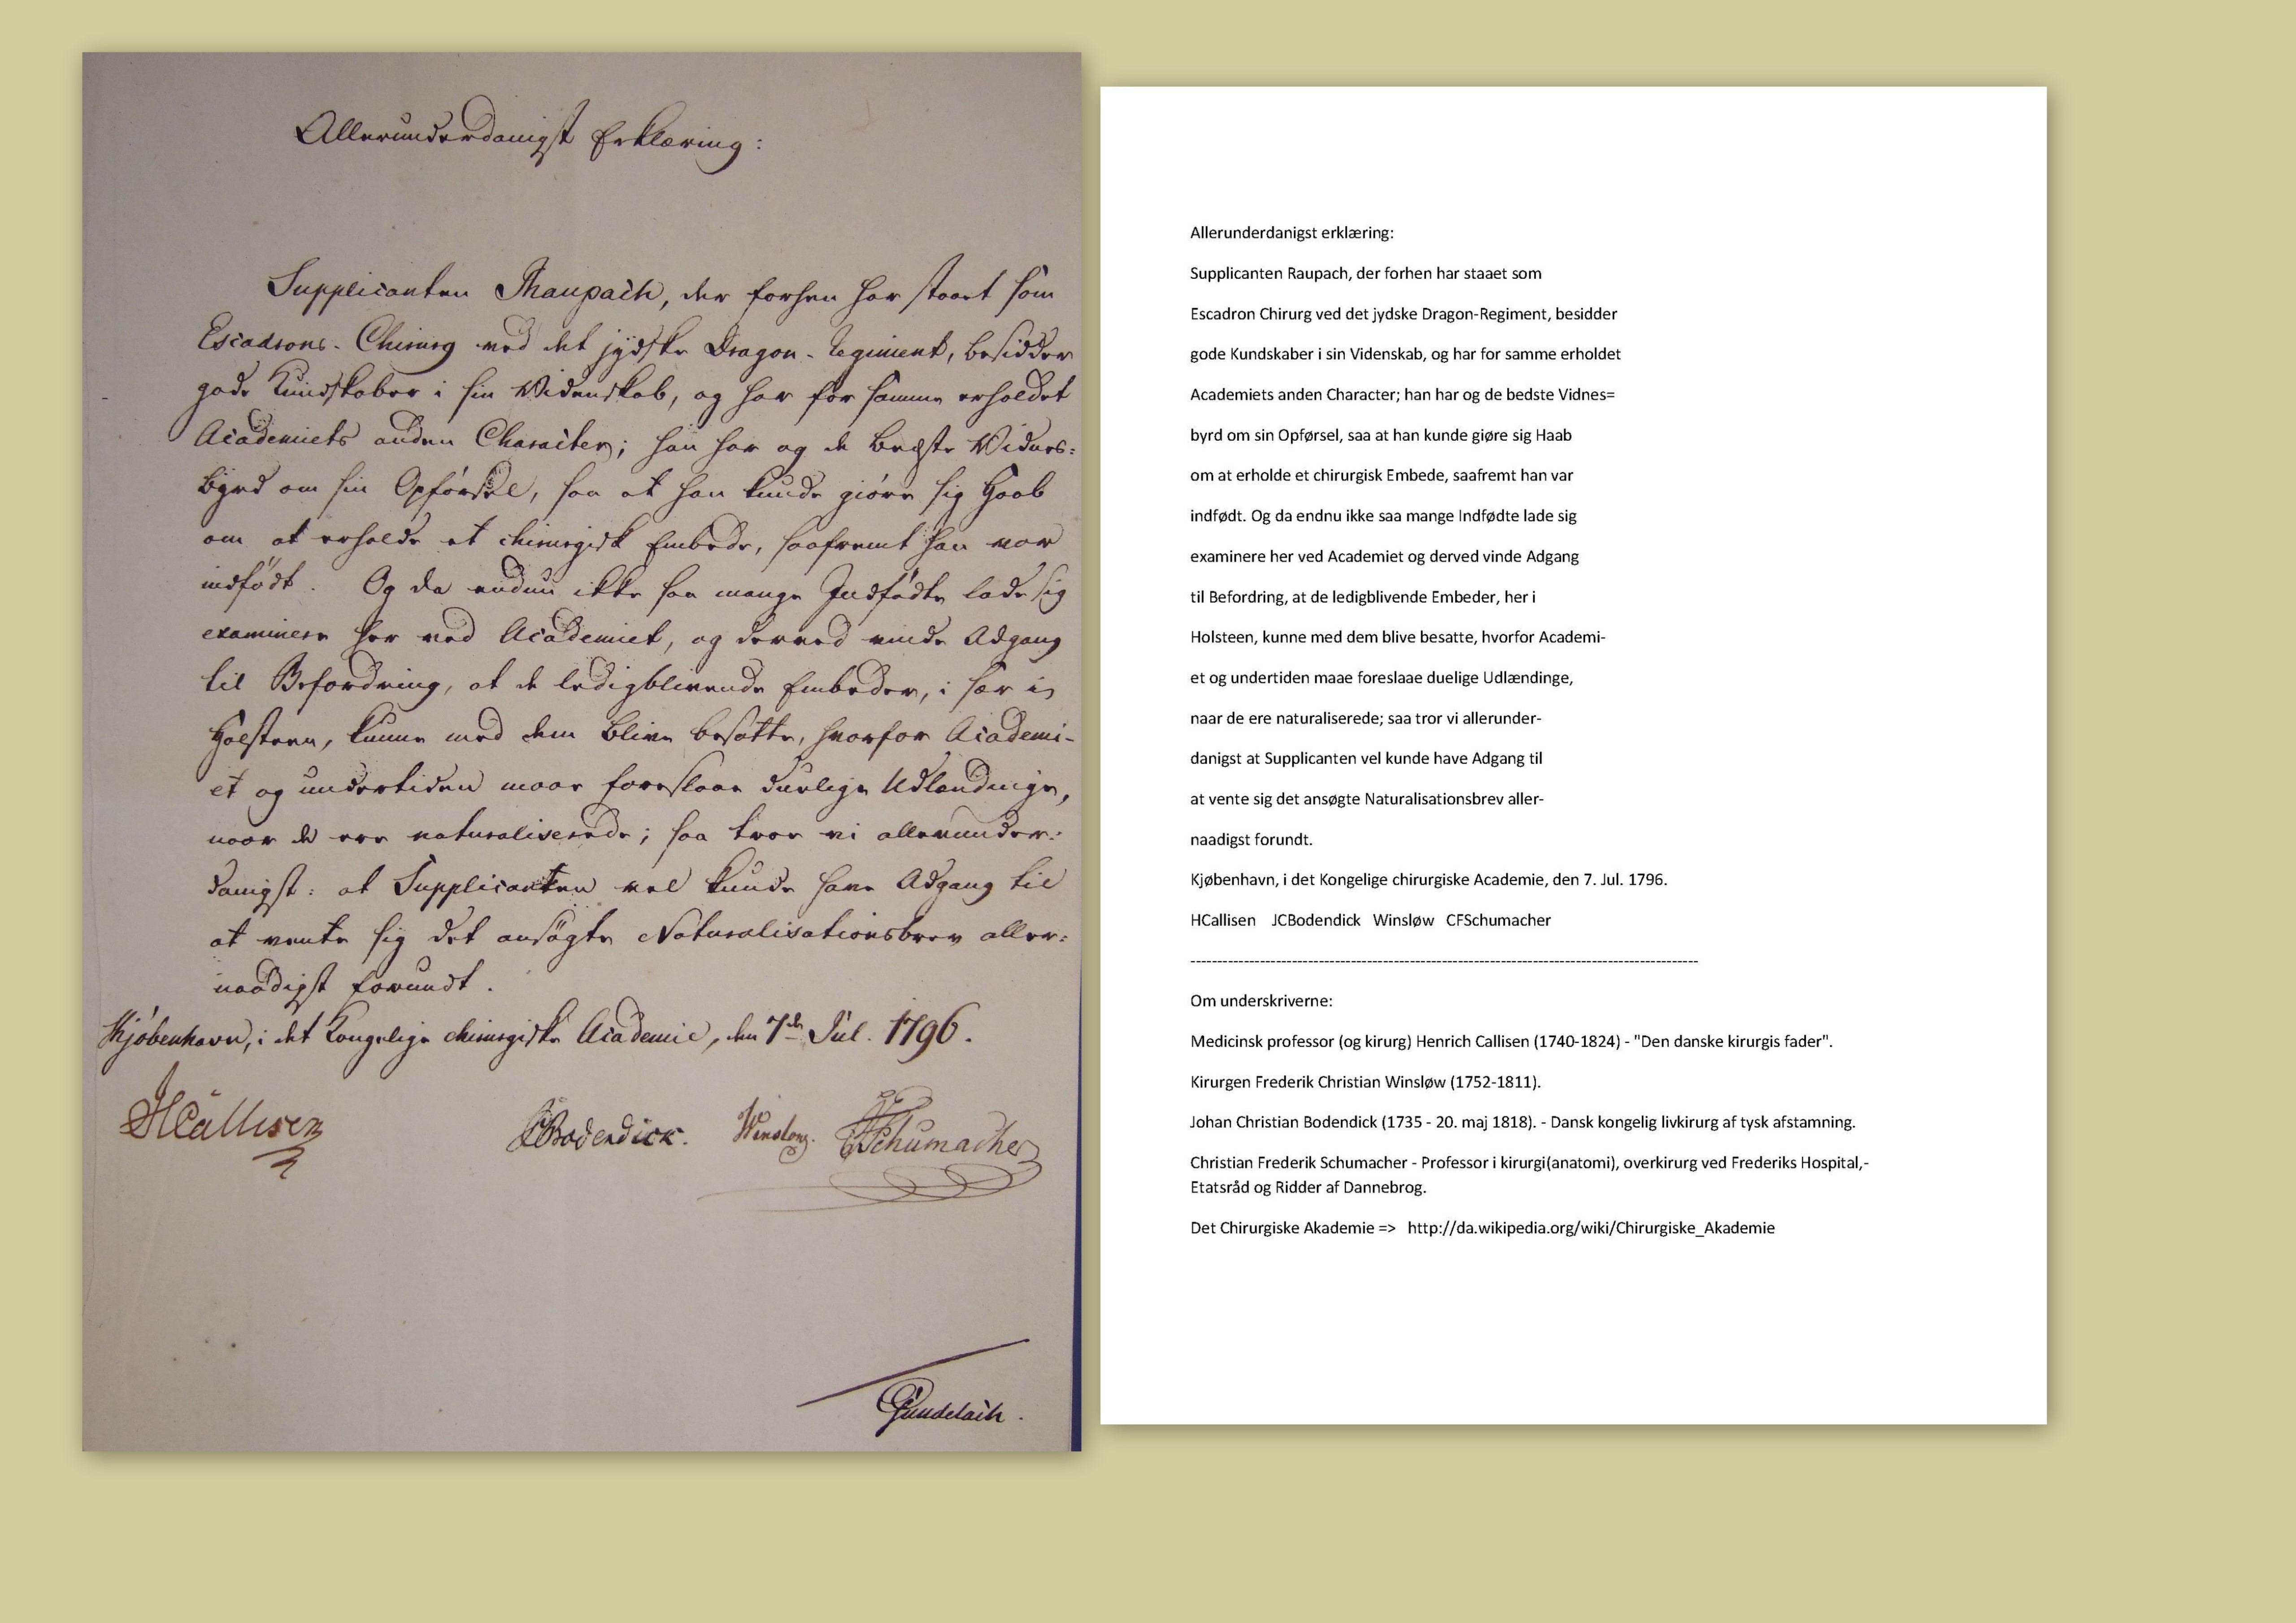 Allerunderdanigst Erklæring:
Supplicanten Rhaupach, der forhen har staaet som
Escadrons-Chirurg ved det jydske Dragon-Regiment, besidder
gode Kundskaber i sin Videnskab, og har for samme erholdet
Academiets anden Character; han har og de bedste Vidnes=
byrd om sin Opførsel, saa at han kunde giøre sig Haab
om at erholde et chirurgisk Embede, saafremt han var
indfødt. Og da endnu ikke saa mange Indfødte lade sig
examinere her ved Academiet, og derved vinde Adgang
til Befordring, at de ledigblivende Embeder, i sær i
Holsteen, kunne med dem blive besatte, hvorfor Academi-
et og undertiden maae foreslaae duelige Udlændinge,
naar de ere naturaliserede; saa troe vi allerunder=
danigst: at Supplicanten vel kunde have Adgang til
at vente sig det ansøgte Naturalisationsbrev aller=
naadigst forundt.
Kjøbenhavn, i det Kongelige chirurgiske Academie, den 7de Jul. 1796.
HCallisen JCBodendick. Winsløw. CFSchumacher
Gundelach.
Allerunderdanigst erklæring:
Supplicanten Raupach, der forhen har staaet som
Escadron Chirurg ved det jydske Dragon-Regiment, besidder
gode Kundskaber i sin Videnskab, og har for samme erholdet
Academiets anden Character; han har og de bedste Vidnes=
byrd om sin Opførsel, saa at han kunde giøre sig Haab
om at erholde et chirurgisk Embede, saafremt han var
indfødt. Og da endnu ikke saa mange Indfødte lade sig
examinere her ved Academiet og derved vinde Adgang
til Befordring, at de ledigblivende Embeder, her i
Holsteen, kunne med dem blive besatte, hvorfor Academi-
et og undertiden maae foreslaae duelige Udlændinge,
naar de ere naturaliserede; saa tror vi allerunder-
danigst at Supplicanten vel kunde have Adgang til
at vente sig det ansøgte Naturalisationsbrev aller-
naadigst forundt.
Kjøbenhavn, i det Kongelige chirurgiske Academie, den 7. Jul. 1796.
HCallisen JCBodendick Winsløw CFSchumacher
-----------------------------------------------------------------------------------------------
Om underskriverne:
Medicinsk professor (og kirurg) Henrich Callisen (1740-1824) - "Den danske kirurgis fader".
Kirurgen Frederik Christian Winsløw (1752-1811).
Johan Christian Bodendick (1735 - 20. maj 1818). - Dansk kongelig livkirurg af tysk afstamning.
Christian Frederik Schumacher - Professor i kirurgi(anatomi), overkirurg ved Frederiks Hospital,-
Etatsråd og Ridder af Dannebrog.
Det Chirurgiske Akademie => http://da.wikipedia.org/wiki/Chirurgiske_Akademie